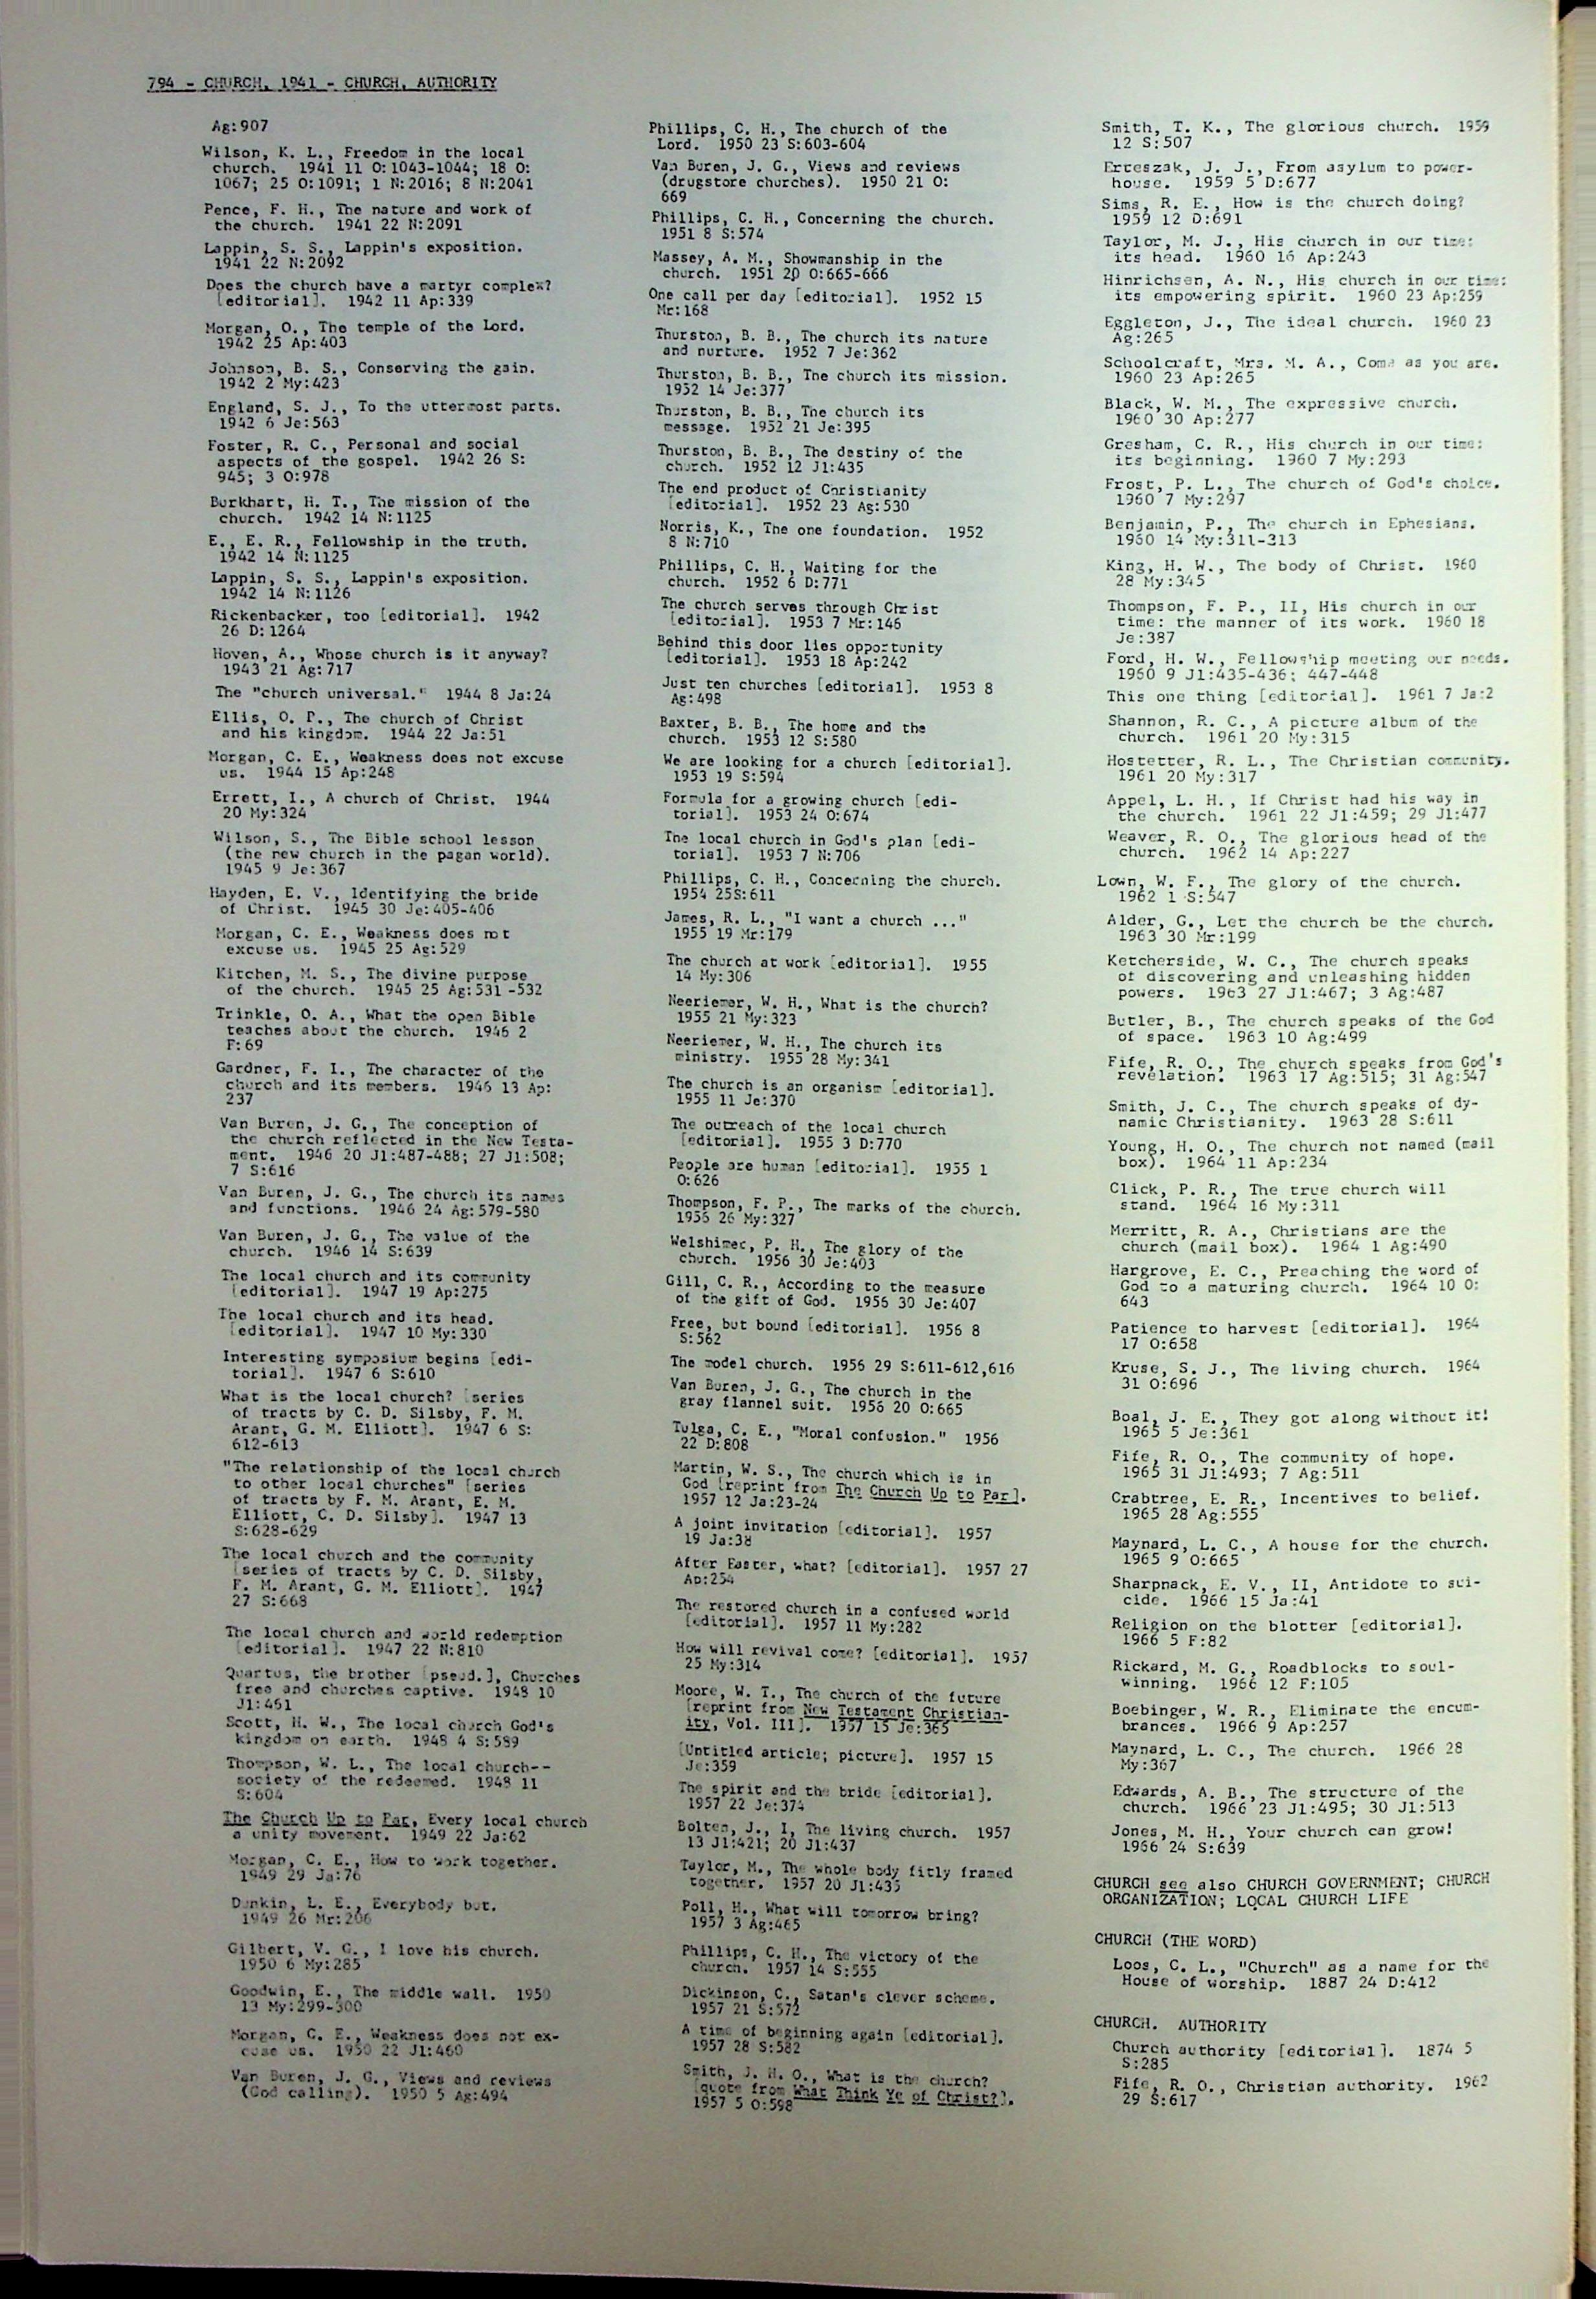 794 - CHURCH, 1941 - CHURCH, AUTHORITY
Ag:907
Wilson, K. L., Freedom in the local
church. 1941 11 O:1043-1044; 18 O:
1067; 25 O:1091; 1 N:2016; 8 N:2041
Pence, F. H., The nature and work of
the church. 1941 22 N:2091
Lappin, S. S., Lappin's exposition.
1941 22 N:2092
Does the church have a martyr complex?
[editorial]. 1942 11 Ap:339
Morgan, O., The temple of the Lord.
1942 25 Ap:403
Johnson, B. S., Conserving the gain.
1942 2 My:423
England, S. J., To the uttermost parts.
1942 6 Je:563
Foster, R. C., Personal and social
aspects of the gospel. 1942 26 S:
945; 3 O:978
Burkhart, H. T., The mission of the
church. 1942 14 N:1125
E., E. R., Fellowship in the truth.
1942 14 N:1125
Lappin, S. S., Lappin's exposition.
1942 14 N:1126
Rickenbacker, too [editorial]. 1942
26 D:1264
Hoven, A., Whose church is it anyway?
1943 21 Ag:717
The "church universal." 1944 8 Ja:24
Ellis, O. P., The church of Christ
and his kingdom. 1944 22 Ja:51
Morgan, C. E., Weakness does not excuse
us. 1944 15 Ap:248
Errett, I., A church of Christ. 1944
20 My:324
Wilson, S., The Bible school lesson
(the new church in the pagan world).
1945 9 Je:367
Hayden, E. V., Identifying the bride
of Christ. 1945 30 Je:405-406
Morgan, C. E., Weakness does not
excuse us. 1945 25 Ag:529
Kitchen, M. S., The divine purpose
of the church. 1945 25 Ag:531-532
Trinkle, O. A., What the open Bible
teaches about the church. 1946 2
F:69
Gardner, F. I., The character of the
church and its members. 1946 13 Ap:
237
Van Buren, J. G., The conception of
the church reflected in the New Testa-
ment. 1946 20 Jl:487-488; 27 Jl:508;
7 S:616
Van Buren, J. G., The church its names
and functions. 1946 24 Ag:579-580
Van Buren, J. G., The value of the
church. 1946 14 S:639
The local church and its community
[editorial]. 1947 19 Ap:275
The local church and its head.
[editorial]. 1947 10 My:330
Interesting symposium begins [edi-
torial]. 1947 6 S:610
What is the local church? [series
of tracts by C. D. Silsby, F. M.
Arant, G. M. Elliott]. 1947 6 S:
612-613
"The relationship of the local church
to other local churches" [series
of tracts by F. M. Arant, E. M.
Elliott, C. D. Silsby]. 1947 13
S:628-629
The local church and the community
[series of tracts by C. D. Silsby,
F. M. Arant, G. M. Elliott]. 1947
27 S:668
The local church and world redemption
[editorial]. 1947 22 N:810
Quartus, the brother [pseud.], Churches
free and churches captive. 1948 10
Jl:461
Scott, H. W., The local church God's
kingdom on earth. 1948 4 S:589
Thompson, W. L., The local church--
society of the redeemed. 1948 11
S:604
The Church Up to Par, Every local church
a unity movement. 1949 22 Ja:62
Morgan, C. E., How to work together.
1949 29 Ja:76
Dunkin, L. E., Everybody but.
1949 26 Mr:206
Gilbert, V. G., I love his church.
1950 6 My:285
Goodwin, E., The middle wall. 1950
13 My:299-300
Morgan, C. E., Weakness does not ex-
cuse us. 1950 22 Jl:460
Van Buren, J. G., Views and reviews
(God calling). 1950 5 Ag:494
Phillips, C. H., The church of the
Lord. 1950 23 S:603-604
Van Buren, J. G., Views and reviews
(drugstore churches). 1950 21 O:
669
Phillips, C. H., Concerning the church.
1951 8 S:574
Massey, A. M., Showmanship in the
church. 1951 20 O:665-666
One call per day [editorial]. 1952 15
Mr:168
Thurston, B. B., The church its nature
and nurture. 1952 7 Je:362
Thurston, B. B., The church its mission.
1952 14 Je:377
Thurston, B. B., The church its
message. 1952 21 Je:395
Thurston, B. B., The destiny of the
church. 1952 12 Jl:435
The end product of Christianity
[editorial]. 1952 23 Ag:530
Norris, K., The one foundation. 1952
8 N:710
Phillips, C. H., Waiting for the
church. 1952 6 D:771
The church serves through Christ
[editorial]. 1953 7 Mr:146
Behind this door lies opportunity
[editorial]. 1953 18 Ap:242
Just ten churches [editorial]. 1953 8
Ag:498
Baxter, B. B., The home and the
church. 1953 12 S:580
We are looking for a church [editorial].
1953 19 S:594
Formula for a growing church [edi-
torial]. 1953 24 O:674
The local church in God's plan [edi-
torial]. 1953 7 N:706
Phillips, C. H., Concerning the church.
1954 25S:611
James, R. L., "I want a church ..."
1955 19 Mr:179
The church at work [editorial]. 1955
14 My:306
Neeriemer, W. H., What is the church?
1955 21 My:323
Neeriemer, W. H., The church its
ministry. 1955 28 My:341
The church is an organism [editorial].
1955 11 Je:370
The outreach of the local church
[editorial]. 1955 3 D:770
People are human [editorial]. 1955 1
O:626
Thompson, F. P., The marks of the church.
1956 26 My:327
Welshimer, P. H., The glory of the
church. 1956 30 Je:403
Gill, C. R., According to the measure
of the gift of God. 1956 30 Je:407
Free, but bound [editorial]. 1956 8
S:562
The model church. 1956 29 S:611-612,616
Van Buren, J. G., The church in the
gray flannel suit. 1956 20 O:665
Tulga, C. E., "Moral confusion." 1956
22 D:808
Martin, W. S., The church which is in
God [reprint from The Church Up to Par].
1957 12 Ja:23-24
A joint invitation [editorial]. 1957
19 Ja:38
After Easter, what? [editorial]. 1957 27
Ap:254
The restored church in a confused world
[editorial]. 1957 11 My:282
How will revival come? [editorial]. 1957
25 My:314
Moore, W. T., The church of the future
[reprint from New Testament Christian-
ity, Vol. III]. 1957 15 Je:365
[Untitled article; picture]. 1957 15
Je:359
The spirit and the bride [editorial].
1957 22 Je:374
Bolten, J., I, The living church. 1957
13 Jl:421; 20 Jl:437
Taylor, M., The whole body fitly framed
together. 1957 20 Jl:435
Poll, H., What will tomorrow bring?
1957 3 Ag:465
Phillips, C. H., The victory of the
church. 1957 14 S:555
Dickinson, C., Satan's clever scheme.
1957 21 S:572
A time of beginning again [editorial].
1957 28 S:582
Smith, J. H. O., What is the church?
[quote from What Think Ye of Christ?].
1957 5 O:598
Smith, T. K., The glorious church. 1959
12 S:507
Erteszak, J. J., From asylum to power-
house. 1959 5 D:677
Sims, R. E., How is the church doing?
1959 12 D:691
Taylor, M. J., His church in our time:
its head. 1960 16 Ap:243
Hinrichsen, A. N., His church in our time:
its empowering spirit. 1960 23 Ap:259
Eggleton, J., The ideal church. 1960 23
Ag:265
Schoolcraft, Mrs. M. A., Come as you are.
1960 23 Ap:265
Black, W. M., The expressive church.
1960 30 Ap:277
Gresham, C. R., His church in our time:
its beginning. 1960 7 My:293
Frost, P. L., The church of God's choice.
1960 7 My:297
Benjamin, P., The church in Ephesians.
1960 14 My:311-313
King, H. W., The body of Christ. 1960
28 My:345
Thompson, F. P., II, His church in our
time: the manner of its work. 1960 18
Je:387
Ford, H. W., Fellowship meeting our needs.
1960 9 Jl:435-436; 447-448
This one thing [editorial]. 1961 7 Ja:2
Shannon, R. C., A picture album of the
church. 1961 20 My:315
Hostetter, R. L., The Christian community.
1961 20 My:317
Appel, L. H., If Christ had his way in
the church. 1961 22 Jl:459; 29 Jl:477
Weaver, R. O., The glorious head of the
church. 1962 14 Ap:227
Lown, W. F., The glory of the church.
1962 1 S:547
Alder, G., Let the church be the church.
1963 30 Mr:199
Ketcherside, W. C., The church speaks
of discovering and unleashing hidden
powers. 1963 27 Jl:467; 3 Ag:487
Butler, B., The church speaks of the God
of space. 1963 10 Ag:499
Fife, R. O., The church speaks from God's
revelation. 1963 17 Ag:515; 31 Ag:547
Smith, J. C., The church speaks of dy-
namic Christianity. 1963 28 S:611
Young, H. O., The church not named (mail
box). 1964 11 Ap:234
Click, P. R., The true church will
stand. 1964 16 My:311
Merritt, R. A., Christians are the
church (mail box). 1964 1 Ag:490
Hargrove, E. C., Preaching the word of
God to a maturing church. 1964 10 O:
643
Patience to harvest [editorial]. 1964
17 O:658
Kruse, S. J., The living church. 1964
31 O:696
Boal, J. E., They got along without it!
1965 5 Je:361
Fife, R. O., The community of hope.
1965 31 Jl:493; 7 Ag:511
Crabtree, E. R., Incentives to belief.
1965 28 Ag:555
Maynard, L. C., A house for the church.
1965 9 O:665
Sharpnack, E. V., II, Antidote to sui-
cide. 1966 15 Ja:41
Religion on the blotter [editorial].
1966 5 F:82
Rickard, M. G., Roadblocks to soul-
winning. 1966 12 F:105
Boebinger, W. R., Eliminate the encum-
brances. 1966 9 Ap:257
Maynard, L. C., The church. 1966 28
My:367
Edwards, A. B., The structure of the
church. 1966 23 Jl:495; 30 Jl:513
Jones, M. H., Your church can grow!
1966 24 S:639
CHURCH see also CHURCH GOVERNMENT; CHURCH
ORGANIZATION; LOCAL CHURCH LIFE
CHURCH (THE WORD)
Loos, C. L., "Church" as a name for the
House of worship. 1887 24 D:412
CHURCH. AUTHORITY
Church authority [editorial]. 1874 5
S:285
Fife, R. O., Christian authority. 1962
29 S:617